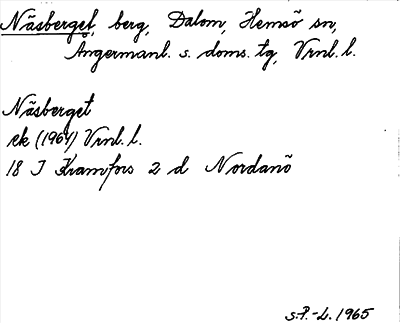 Näsberget, berg, Dalom, Hemsö sn,
Ångermanl. s. doms. tg, Vrnl. l.
Näsberget
ek (1964) Vrnl. l.
18 I Kramfors 2 d Nordanö
S.P.-L. 1965